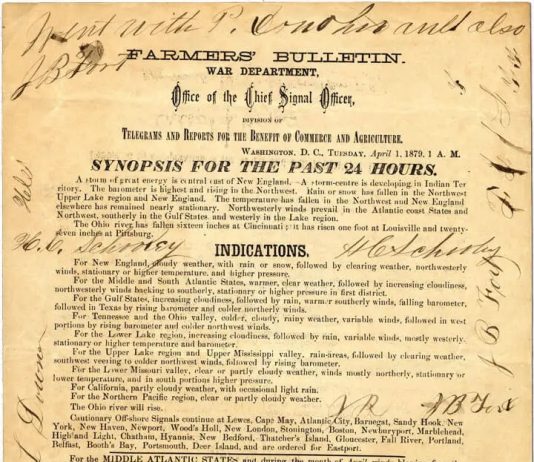 Went with P. Donohu and also
J B Fort
FARMERS' BULLETIN.
WAR DEPARTMENT,
Office of the Chief Signal Officer,
DIVISION OF
TELEGRAMS AND REPORTS FOR THE BENEFIT OF COMMERCE AND AGRICULTURE.
WASHINGTON, D. C., TUESDAY, April 1, 1879, 1 A. M.
SYNOPSIS FOR THE PAST 24 HOURS.
A storm of great energy is central east of New England. A storm-centre is developing in Indian Ter
ritory. The barometer is highest and rising in the Northwest. Rain or snow has fallen in the Northwest
Upper Lake region and New England. The temperature has fallen in the Northwest and New England
elsewhere has remained nearly stationary. Northwesterly winds prevail in the Atlantic coast States and
Northwest, southerly in the Gulf States and westerly in the Lake region.
The Ohio river has fallen sixteen inches at Cincinnati; it has risen one foot at Louisville and twenty-
seven inches at Pittsburg.
INDICATIONS.
For New England, cloudy weather, with rain or snow, followed by clearing weather, northwesterly
winds, stationary or higher temperature, and higher pressure.
For the Middle and South Atlantic States, warmer, clear weather, followed by increasing cloudiness,
northwesterly winds backing to southerly, stationary or higher pressure in first district.
For the Gulf States, increasing cloudiness, followed by rain, warmer southerly winds, falling barometer,
followed in Texas by rising barometer and colder northerly winds.
For Tennessee and the Ohio valley, colder, cloudy, rainy weather, variable winds, followed in west
portions by rising barometer and colder northwest winds.
For the Lower Lake region, increasing cloudiness, followed by rain, variable winds, mostly westerly,
stationary or higher temperature and barometer.
For the Upper Lake region and Upper Mississippi valley, rain-areas, followed by clearing weather,
southwest veering to colder northwest winds, followed by rising barometer.
For the Lower Missouri valley, clear or partly cloudy weather, winds mostly northerly, stationary or
lower temperature, and in south portions higher pressure.
For California, partly cloudy weather, with occasional light rain.
For the Northern Pacific region, clear or partly cloudy weather.
The Ohio river will rise.
Cautionary Off-shore Signals continue at Lewes, Cape May, Atlantic City, Barnegat, Sandy Hook, New
York, New Haven, Newport, Wood's Holl, New London, Stonington, Boston, Newburyport, Marblehead,
Highland Light, Chatham, Hyannis, New Bedford, Thatcher's Island, Gloucester, Fall River, Portland,
Belfast, Booth's Bay, Portsmouth, Deer Island, and are ordered for Eastport.
For the MIDDLE ATLANTIC STATES and during the month of April